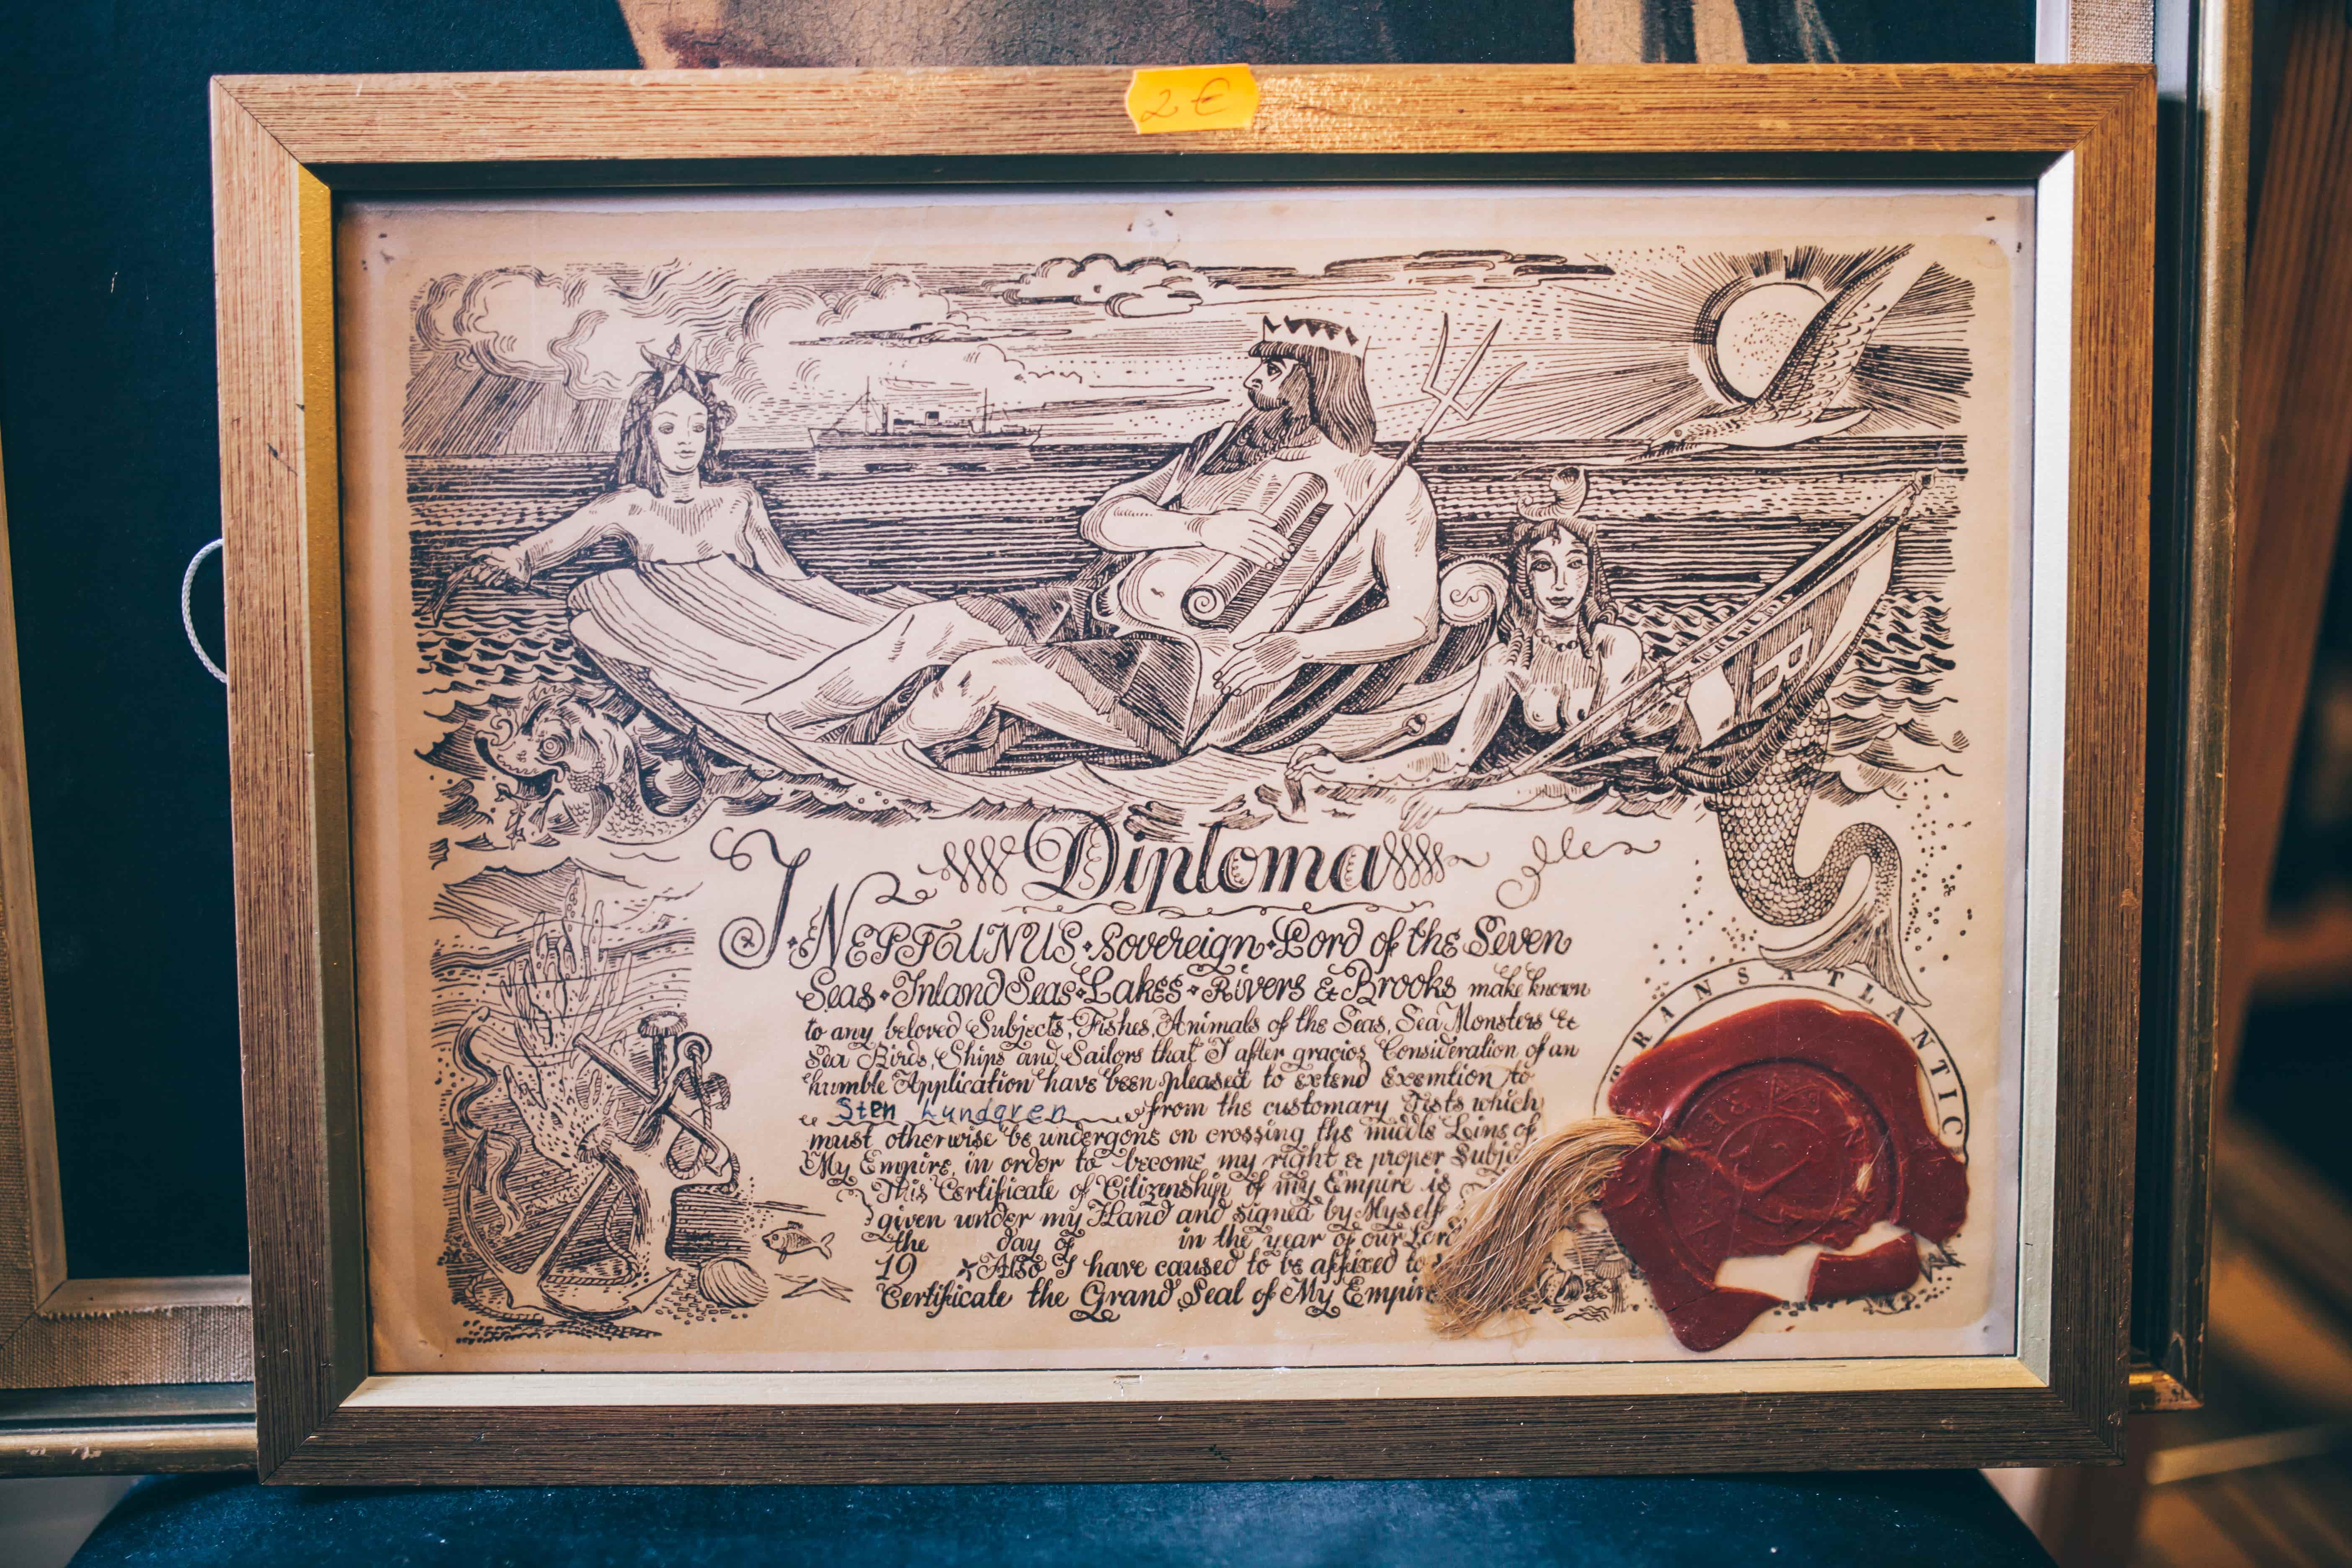 2 €
Diploma
I · NEPTUNUS · Sovereign · Lord of the Seven
Seas · Inland Seas · Lakes · Rivers & Brooks make known
to any beloved Subjects, Fishes, Animals of the Seas, Sea Monsters &
Sea Birds, Ships and Sailors that I after gracios Consideration of an
humble Application have been pleased to extend Exemtion to
Sten Lundgren from the customary Tests which
must otherwise be undergone on crossing the middle Line of
My Empire, in order to become my right & proper Subje
This Certificate of Citizenship of my Empire is
given under my Hand and signed by Myself
the day of in the year of our Lord
19 Also I have caused to be affixed to
Certificate the Grand Seal of My Empire
TRANSATLANTIC